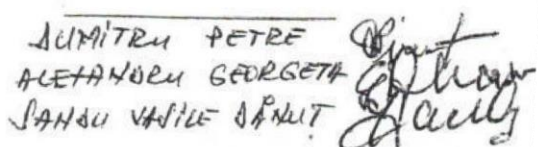 DUMITRU PETRE
ALEXANDRU GEORGETA
SANDU VASILE DĂNUȚ